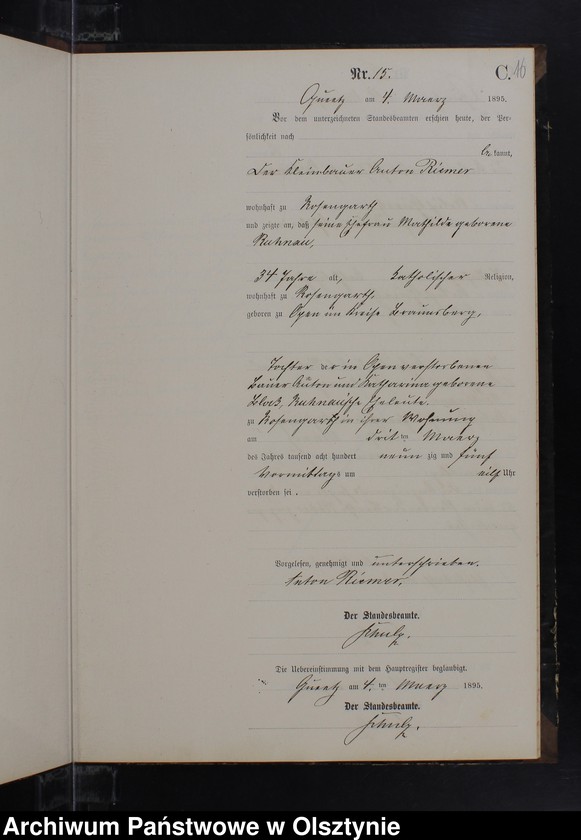 Nr. 15.
C. 16
Queetz am 4. Maerz 1895.
Vor dem unterzeichneten Standesbeamten erschien heute, der Per-
sönlichkeit nach
be kannt,
der Kleinbauer Anton Riemer
wohnhaft zu Rosengarth
und zeigte an, daß seine Ehefrau Mathilde geborene
Ruhnau,
34 Jahre alt, katholischer Religion,
wohnhaft zu Rosengarth,
geboren zu Open im Kreise Braunsberg,
Tochter der in Open verstorbenen
Bauer Anton und Katharina geborene
Block, Ruhnau'sche Eheleute.
zu Rosengarth in ihrer Wohnung
am drit ten Maerz
des Jahres tausend acht hundert neun zig und fünf
Vormittags um eilf Uhr
verstorben sei.
Vorgelesen, genehmigt und unterschrieben.
Anton Riemer.
Der Standesbeamte.
Schulz.
Die Uebereinstimmung mit dem Hauptregister beglaubigt.
Queetz am 4. ten Maerz 1895.
Der Standesbeamte.
Schulz.
Archiwum Państwowe w Olsztynie